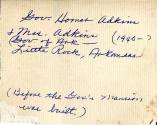 Gov. Homer Adkins
& Mrs. Adkins (1940- )
Gov of Ark —
Little Rock, Arkansas
(Before the Gov's Mansion
was built.)